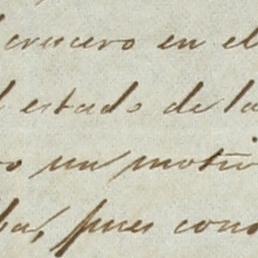 crucero en el
estado de la
un motiv
ba, pues cono